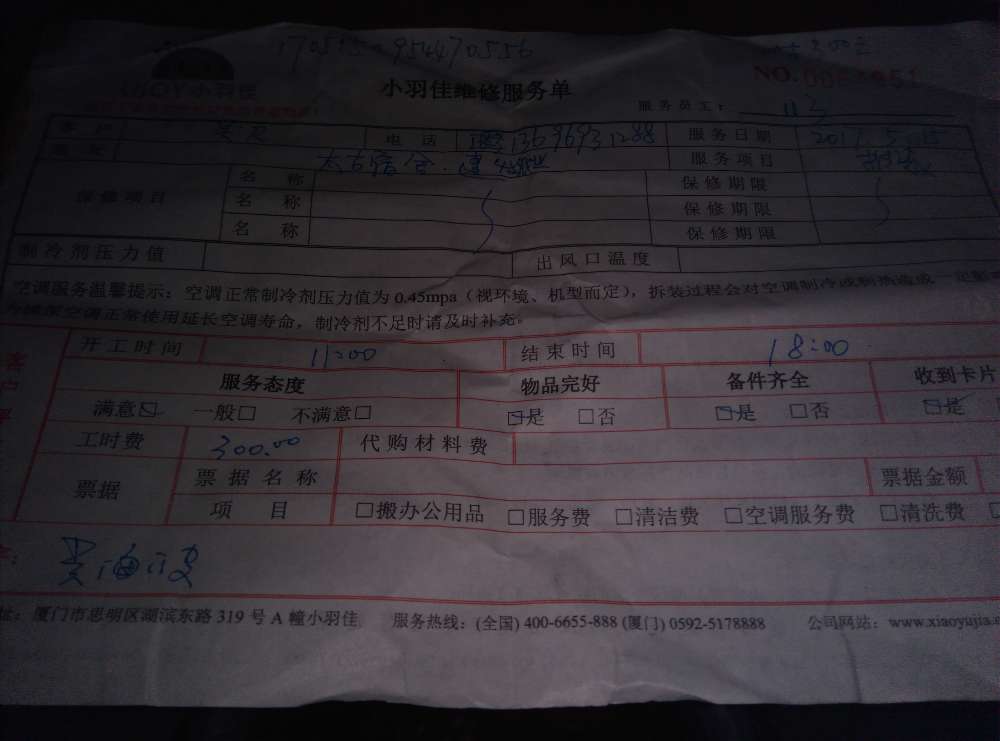 小羽佳
小羽佳维修服务单
NO.
服务员工:
客户 电话 13696931288 服务日期
地址 服务项目
保修项目 名称 保修期限
名称 保修期限
名称 保修期限
制冷剂压力值 出风口温度
空调服务温馨提示:空调正常制冷剂压力值为0.45mpa(视环境、机型而定),拆装过程会对空调制冷或制热造成
为确保空调正常使用延长空调寿命,制冷剂不足时请及时补充。
开工时间 11:00 结束时间 18:00
服务态度 物品完好 备件齐全 收到卡片
满意☑ 一般□ 不满意□ ☑是 □否 ☑是 □否 ☑是
工时费 300.00 代购材料费
票据 票据名称 票据金额
项目 □搬办公用品 □服务费 □清洁费 □空调服务费 □清洗费
址:厦门市思明区湖滨东路 319 号 A 幢小羽佳 服务热线:(全国) 400-6655-888 (厦门) 0592-5178888 公司网站:www.xiaoyujia.